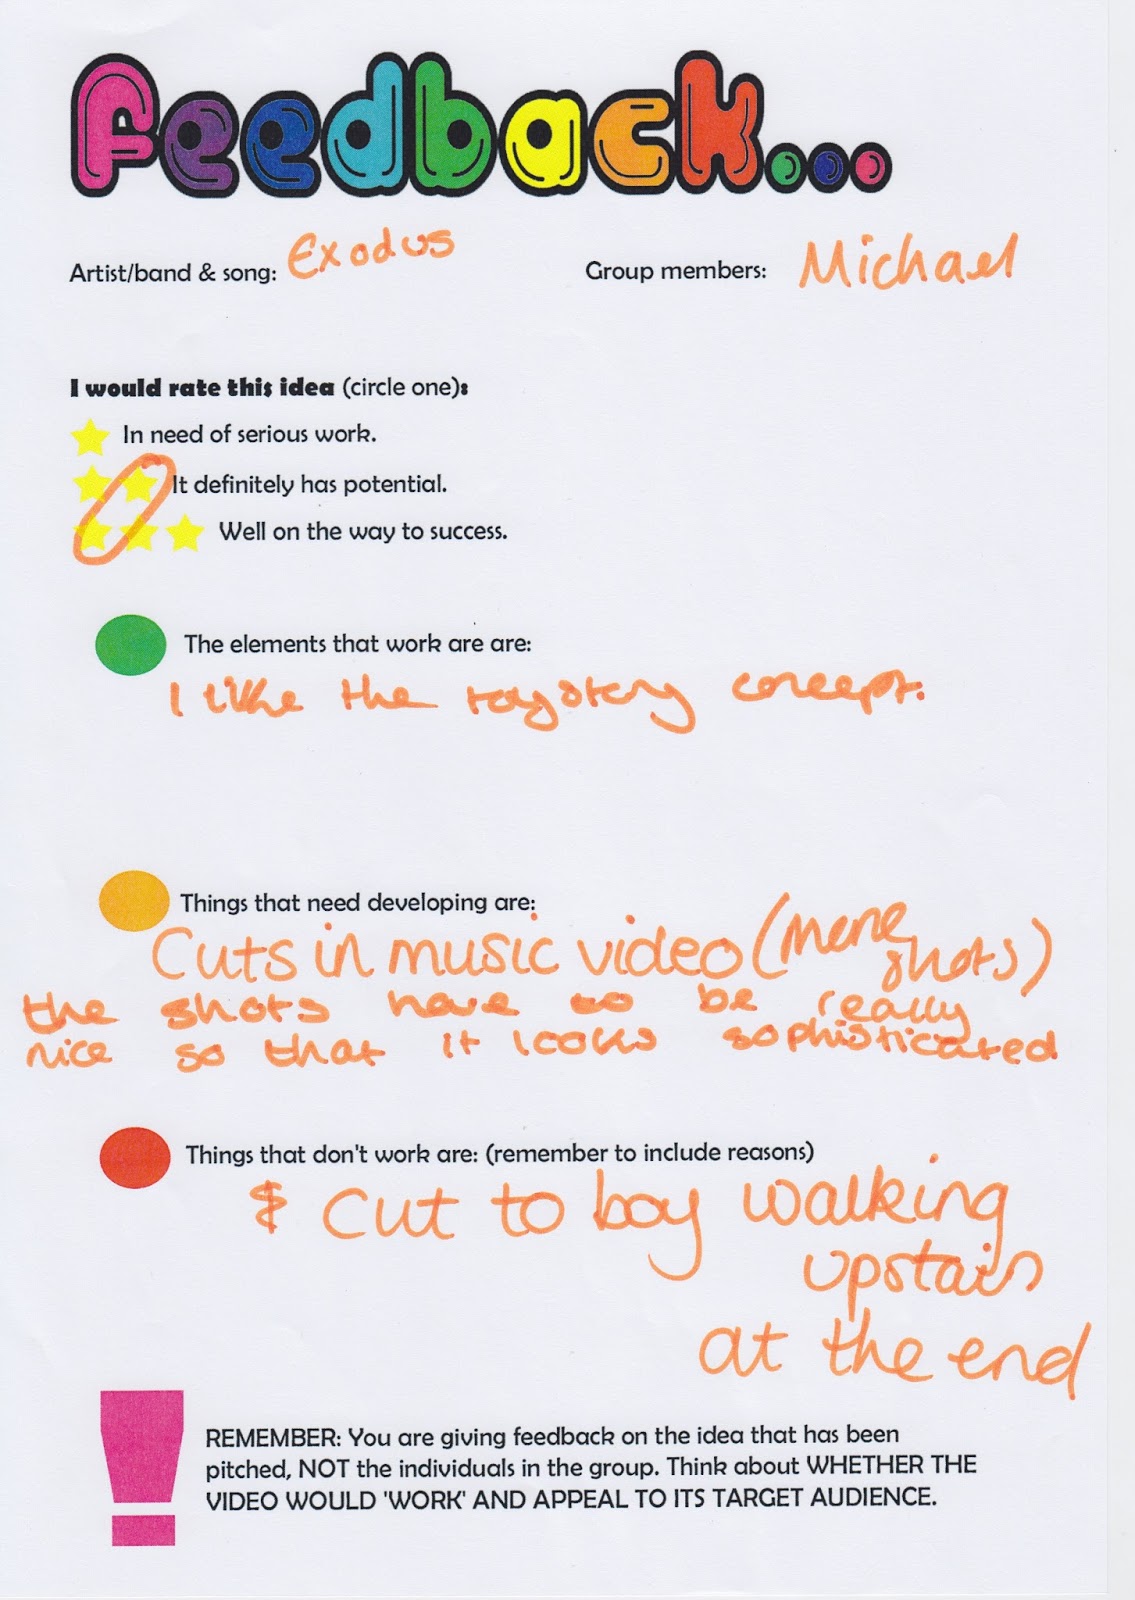 Feedback...
Artist/band & song: Exodus Group members: Michael
I would rate this idea (circle one):
In need of serious work.
It definitely has potential.
Well on the way to success.
The elements that work are are:
I like the mystery concept.
Things that need developing are:
Cuts in music video (more shots)
the shots have to be really
nice so that it looks sophisticated
Things that don't work are: (remember to include reasons)
cut to boy walking
upstairs
at the end
REMEMBER: You are giving feedback on the idea that has been
pitched, NOT the individuals in the group. Think about WHETHER THE
VIDEO WOULD 'WORK' AND APPEAL TO ITS TARGET AUDIENCE.